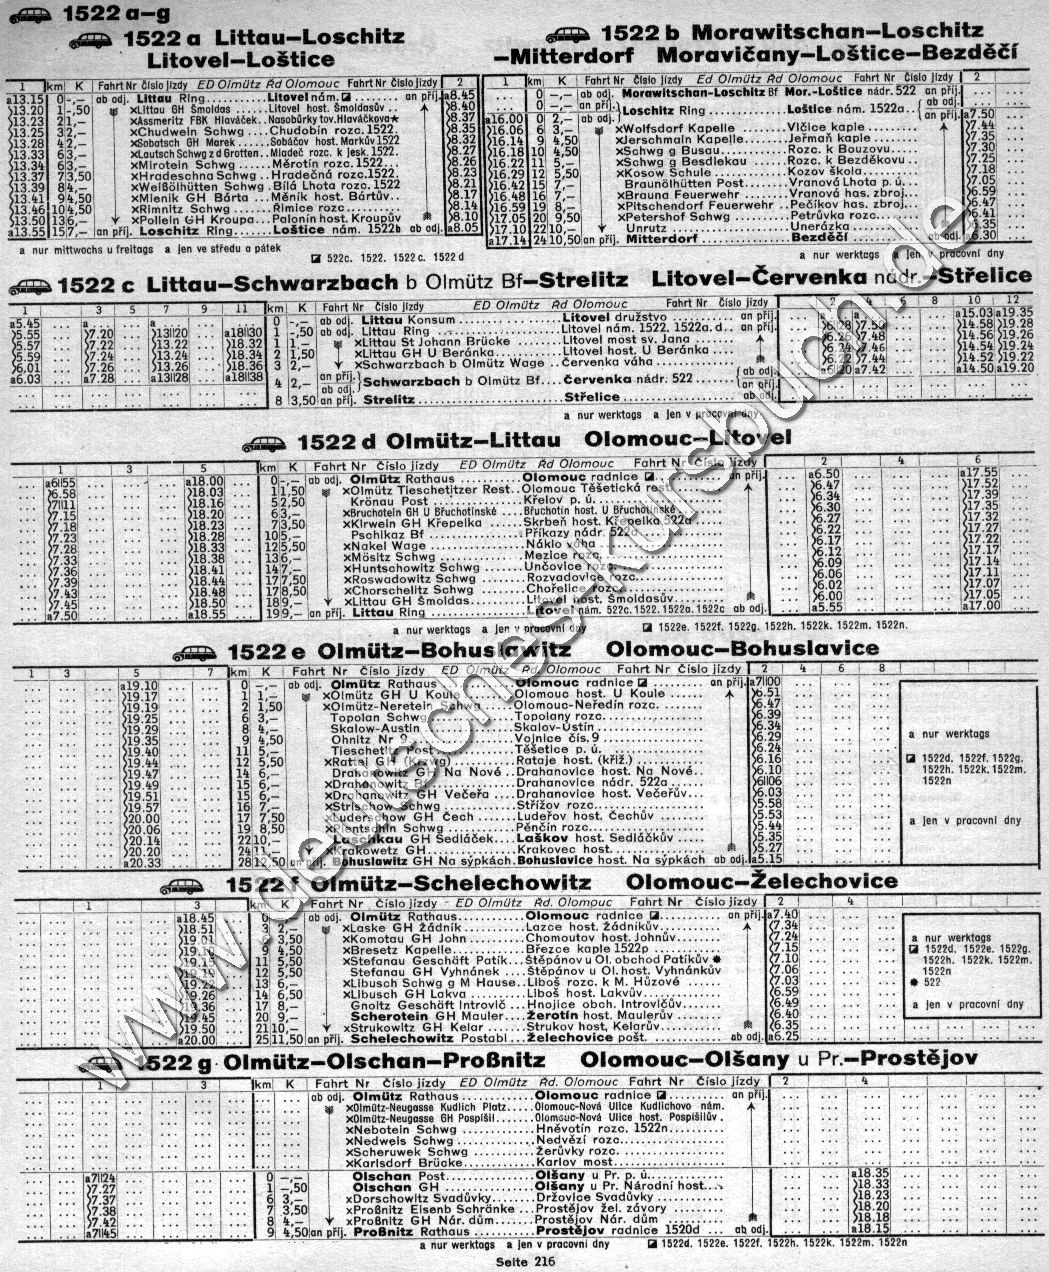 1522 a–g
1522 a Littau–Loschitz
Litovel–Loštice
1 km K Fahrt Nr Číslo jízdy ED Olmütz ŘD Olomouc Fahrt Nr Číslo jízdy 2
a13.15 0 –,– ab odj. Littau Ring Litovel nám. an příj. a8.45
13.20 1 –,50 ×Littau GH Šmoldas Litovel host. Šmoldasův 8.40
13.23 2 1,– ×Assmeritz FBK Hlaváček Nasobůrky tov. Hlaváčkova★ 8.37
13.25 3 2,– ×Chudwein Schwg Chudobín rozc. 1522. 8.35
13.28 4 2,– ×Sobatsch GH Marek Sobáčov host. Markův 1522 8.32
13.33 6 3,– ×Lautsch Schwg z d Grotten Mladeč rozc. k jesk. 1522. 8.27
13.34 6 3,– ×Mirotein Schwg Měrotín rozc. 1522. 8.26
13.37 7 3,50 ×Hradeschna Schwg Hradečná rozc. 1522. 8.23
13.39 8 4,– ×Weißölhütten Schwg Bílá Lhota rozc. 1522 8.21
13.41 9 4,50 ×Mienik GH Bárta Měník host. Bártův 8.17
13.46 10 4,50 ×Rimnitz Schwg Řimice rozc. 8.14
13.50 13 6,– ×Pollein GH Kroupa Palonín host. Kroupův 8.10
a13.55 15 7,– an příj. Loschitz Ring Loštice nám. 1522b ab odj. a8.05
a nur mittwochs u freitags a jen ve středu a pátek
522c. 1522. 1522c. 1522d
1522 b Morawitschan–Loschitz
–Mitterdorf Moravičany–Loštice–Bezděčí
1 km K Fahrt Nr Číslo jízdy Ed Olmütz Řd Olomouc Fahrt Nr Číslo jízdy 2
0 –,– ab odj. Morawitschan-Loschitz Bf Mor.-Loštice nádr. 522 an příj.
0 –,– an příj. Loschitz Ring Loštice nám. 1522a ab odj.
a16.00 0 2,– ab odj. an příj. a7.50
16.06 6 3,– ×Wolfsdorf Kapelle Vlčice kaple 7.44
16.14 9 4,50 ×Jerschmain Kapelle Jeřmaň kaple 7.35
16.18 10 4,50 ×Schwg g Busau Rozc. k Bouzovu 7.30
16.22 11 5,– ×Schwg g Besdlekau Rozc. k Bezděkovu 7.25
16.29 12 5,50 ×Kosow Schule Kozov škola 7.18
16.42 15 7,– Braunölhütten Post Vranová Lhota p. ú. 7.05
16.48 16 7,– ×Brauna Feuerwehr Vranová has. zbroj. 6.59
16.59 19 8,– ×Pitschendorf Feuerwehr Pečíkov has. zbroj. 6.47
17.05 20 9,50 ×Petershof Schwg Petrůvka rozc. 6.41
17.10 22 10,– Unrutz Unerázka 6.35
a17.14 24 10,50 an příj. Mitterdorf Bezděčí ab odj. a6.30
a nur werktags a jen v pracovní dny
1522 c Littau–Schwarzbach b Olmütz Bf–Strelitz Litovel–Červenka nádr.–Střelice
1 3 5 7 9 11 km K Fahrt Nr Číslo jízdy ED Olmütz Řd Olomouc Fahrt Nr Číslo jízdy 2 4 6 8 10 12
a5.45 a a 0 –,– ab odj. Littau Konsum Litovel družstvo an příj. a15.03 a19.35
5.55 7.20 13||20 a18||30 1 –,50 ab odj. Littau Ring Litovel nám. 1522. 1522a. d an příj. 6||28 7.50 14.58 19.28
5.57 7.22 13.22 18.32 1 1,– ×Littau St Johann Brücke Litovel most sv. Jana 6.26 7.48 14.56 19.26
5.59 7.24 13.24 18.34 2 1,50 ×Littau GH U Beránka Litovel host. U Beránka 6.24 7.46 14.54 19.24
6.01 7.26 13.26 18.36 3 2,– ×Schwarzbach b Olmütz Wage Červenka váha 6.22 7.44 14.52 19.22
a6.03 a7.28 a13||28 a18||38 4 2,– an příj. Schwarzbach b Olmütz Bf Červenka nádr. 522 ab odj. a6||20 a7.42 a14.50 a19.20
ab odj. an příj.
8 3,50 an příj. Strelitz Střelice ab odj.
a nur werktags a jen v pracovní dny
1522 d Olmütz–Littau Olomouc–Litovel
1 3 5 km K Fahrt Nr Číslo jízdy ED Olmütz Řd Olomouc Fahrt Nr Číslo jízdy 2 4 6
a6||55 a18.00 0 –,– ab odj. Olmütz Rathaus Olomouc radnice an příj. a6.50 a17.55
6.58 18.03 1 1,50 ×Olmütz Tieschetitzer Rest Olomouc Těšetická rest. 6.47 17.52
7||11 18.16 5 2,50 Krönau Post Křelov p. ú. 6.34 17.39
7.15 18.20 6 3,– ×Bruchotein GH U Břuchotínské Břuchotín host. U Břuchotínské 6.30 17.35
7.18 18.23 7 3,50 ×Kirwein GH Křepelka Skrbeň host. Křepelka 522a 6.27 17.32
7.23 18.28 10 5,– Pschikaz Bf Příkazy nádr. 522a 6.22 17.27
7.28 18.33 12 5,50 ×Nakel Wage Náklo váha 6.17 17.22
7.33 18.38 13 6,– ×Mösitz Schwg Mezice rozc. 6.12 17.17
7.36 18.41 14 7,– ×Huntschowitz Schwg Unčovice rozc. 6.09 17.14
7.39 18.44 17 7,50 ×Roswadowitz Schwg Rozvadovice rozc. 6.06 17.11
7.43 18.48 17 8,50 ×Chorschelitz Schwg Chořelice rozc. 6.02 17.07
7.45 18.50 18 9,– ×Littau GH Šmoldas Litovel host. Šmoldasův 6.00 17.05
a7.50 a18.55 19 9,– an příj. Littau Ring Litovel nám. 522c. 1522. 1522a. 1522c ab odj. a5.55 a17.00
a nur werktags a jen v pracovní dny 1522e. 1522f. 1522g. 1522h. 1522k. 1522m. 1522n.
1522 e Olmütz–Bohuslawitz Olomouc–Bohuslavice
1 3 5 7 km K Fahrt Nr Číslo jízdy ED Olmütz Řd. Olomouc Fahrt Nr Číslo jízdy 2 4 6 8
a19.10 0 –,– ab odj. Olmütz Rathaus Olomouc radnice an příj. a7||00
19.17 1 1,– ×Olmütz GH U Koule Olomouc host. U Koule 6.51
19.19 2 1,50 ×Olmütz-Neretein Schwg Olomouc-Neředín rozc. 6.47
19.25 6 3,– Topolan Schwg Topolany rozc. 6.39
19.29 8 4,– Skalow-Austin Skalov-Ústín 6.34
19.35 9 4,50 Ohnitz Nr 9 Vojnice čís. 9 6.29
19.40 11 5,– Tieschetitz Post Těšetice p. ú. 6.24
19.44 12 5,50 ×Rattai GH (Krzwg) Rataje host. (křiž.) 6.16
19.47 14 6,– Drahanowitz GH Na Nové Drahanovice host. Na Nové 6.10
19.49 15 6,– ×Drahanowitz Bf Drahanovice nádr. 522a 6||06
19.51 15 6,– ×Drahanowitz GH Večeřa Drahanovice host. Večeřův 6.03
19.57 16 7,– ×Strischow Schwg Střížov rozc. 5.58
20.00 17 7,50 ×Luderschow GH Čech Luderov host. Čechův 5.53
20.06 19 8,50 ×Pientschin Schwg Pěnčín rozc. 5.44
20.14 22 10,– Laschkau GH Sedláček Laškov host. Sedláčkův 5.35
20.20 24 11,– ×Krakowetz GH Krakovec host. 5.27
a20.33 28 12,50 an příj. Bohuslawitz GH Na sýpkách Bohuslavice host. Na sýpkách ab odj. a5.15
a nur werktags
1522d. 1522f. 1522g.
1522h. 1522k. 1522m.
1522n
a jen v pracovní dny
1522 f Olmütz–Schelechowitz Olomouc–Želechovice
1 3 km K Fahrt Nr Číslo jízdy ED Olmütz Řd. Olomouc Fahrt Nr Číslo jízdy 2 4
a18.45 0 ab odj. Olmütz Rathaus Olomouc radnice an příj. a7.40
18.51 3 2,– ×Laske GH Žádník Lazce host. Žádníkův 7.34
19.01 3,50 ×Komotau GH John Chomoutov host. Johnův 7.24
9 4,50 ×Bresetz Kapelle Březce kaple 1522p 7.15
11 5,50 ×Stefanau Geschäft Patík Štěpánov u Ol. obchod Patíkův ✱ 7.10
12 5,50 Stefanau GH Vyhnánek Štěpánov u Ol. host. Vyhnánkův 7.06
19.22 13 6,– ×Libusch Schwg g M Hause Liboš rozc. k M. Hůzové 7.03
19.26 14 6,50 ×Libusch GH Lakva Liboš host. Lakvův 6.59
19.36 17 8,– Gnoitz Geschäft Introvič Hnojice obch. Introvičův 6.49
19.45 20 9,– Scherotein GH Mauler Žerotín host. Maulerův 6.40
19.50 21 10,– ×Strukowitz GH Kelar Strukov host. Kelarův 6.35
a20.00 25 11,50 an příj. Schelechowitz Postabl Želechovice pošt. ab odj. a6.25
a nur werktags
1522d. 1522e. 1522g.
1522h. 1522k. 1522m.
1522n
✱ 522
a jen v pracovní dny
1522 g Olmütz–Olschan–Proßnitz Olomouc–Olšany u Pr.–Prostějov
1 3 km K Fahrt Nr Číslo jízdy ED Olmütz Řd. Olomouc Fahrt Nr Číslo jízdy 2 4
ab odj. Olmütz Rathaus Olomouc radnice an příj.
×Olmütz-Neugasse Kudlich Platz Olomouc-Nová Ulice Kudlichovo nám.
×Olmütz-Neugasse GH Pospíšil Olomouc-Nová Ulice host. Pospíšilův
×Nebotein Schwg Hněvotín rozc. 1522n
×Nedweis Schwg Nedvězí rozc.
×Scheruwek Schwg Žerůvky rozc.
×Karlsdorf Brücke Karlov most
0 –,– Olschan Post Olšany u Pr. p. ú. a18.35
a7||24 1 –,50 Olschan GH Olšany u Pr. Národní host. 18.33
7.27 6 3,– ×Dorschowitz Svadůvky Držovice Svadůvky 18.23
7.37 7 3,50 ×Proßnitz Eisenb Schränke Prostějov žel. závory 18.20
7.38 8 4,– ×Proßnitz GH Nár. dům Prostějov Nár. dům 18.18
7.42 9 4,50 an příj. Proßnitz Rathaus Prostějov radnice 1520d ab odj. a18.15
a7||45
a nur werktags a jen v pracovní dny 1522d. 1522e. 1522f. 1522h. 1522k. 1522m. 1522n
Seite 216
www.deutsches-kursbuch.de